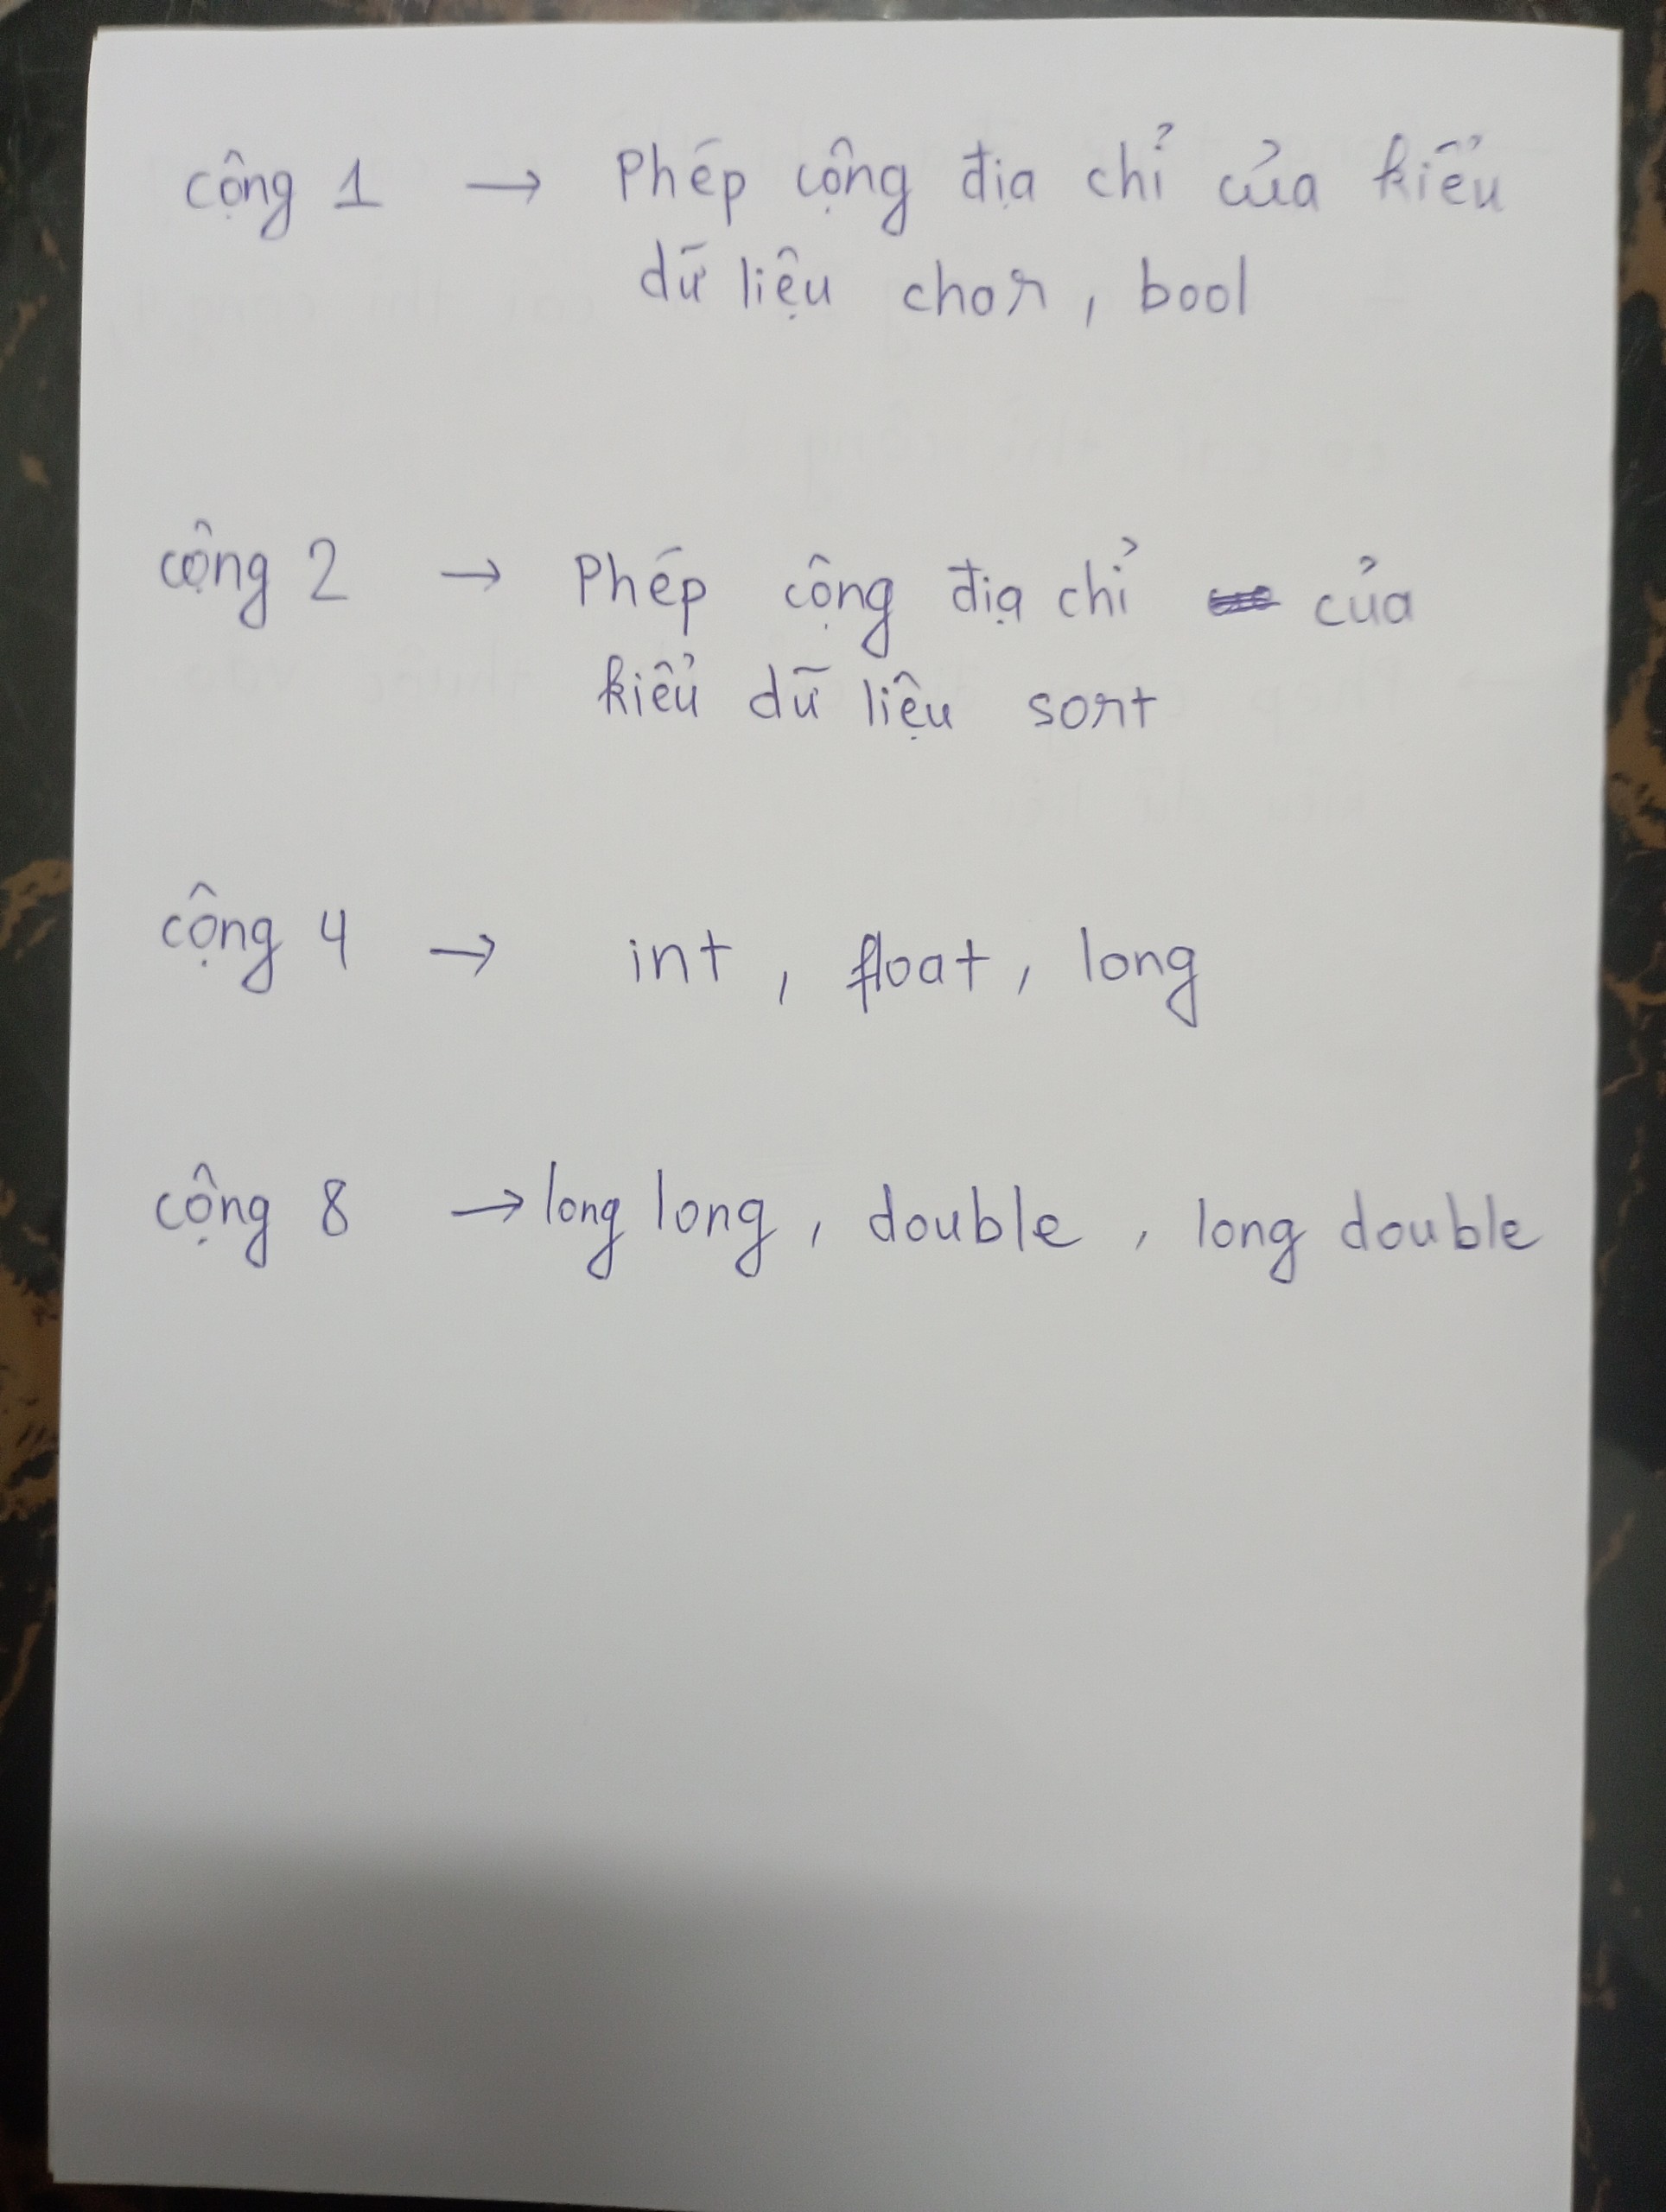 cộng 1 → Phép cộng địa chỉ của kiểu
dữ liệu char, bool
cộng 2 → Phép cộng địa chỉ của
kiểu dữ liệu sort
cộng 4 → int, float, long
cộng 8 → long long, double, long double